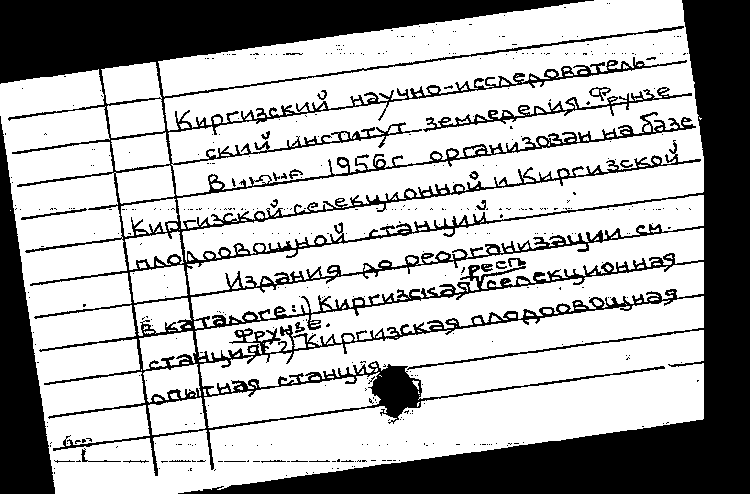 Киргизский научно-исследователь-
ский институт земледелия. Фрунзе
В июне 1956 г организован на базе
Киргизской селекционной и Киргизской
плодоовощной станций.
Издания до реорганизации см.
в каталоге: 1) Киргизская респ селекционная
станция, Фрунзе. 2) Киргизская плодоовощная
опытная станция.